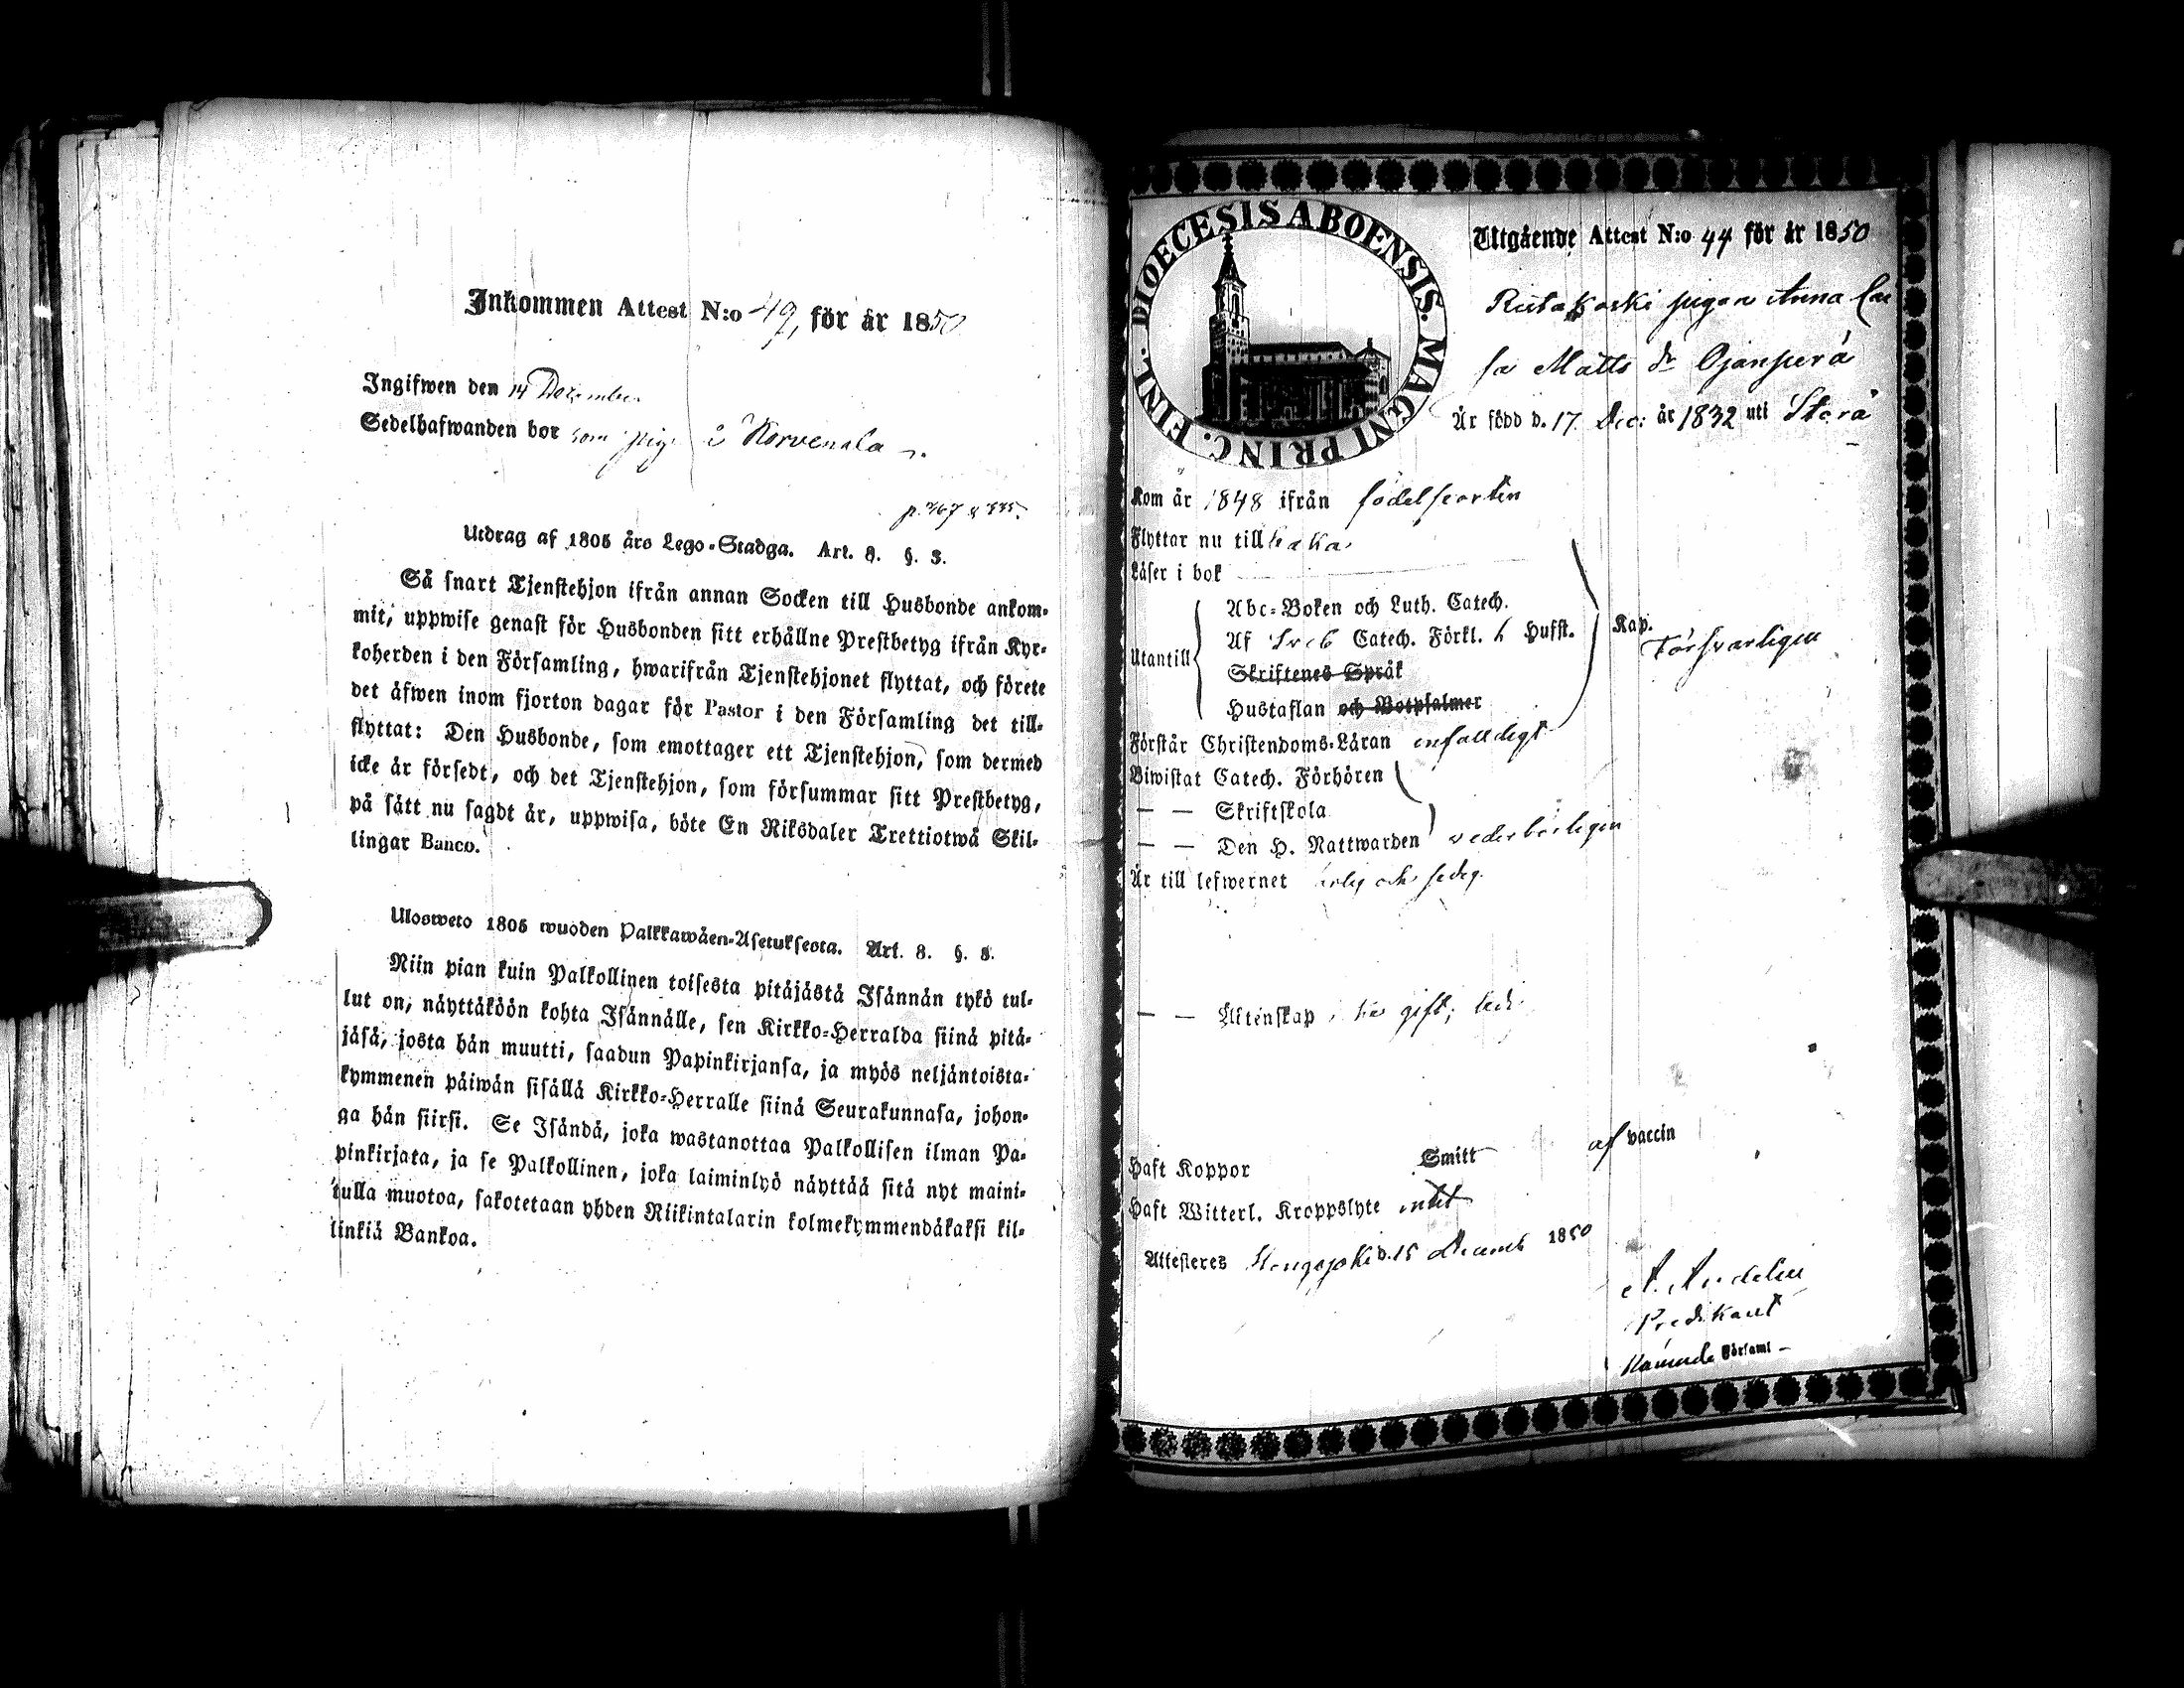 Inkommen Attest N:o 49, för år 1850
Ingifwen den 14 December
Sedelhafwanden bor som pig i Korvenala
p. 767 & 
Utdrag af 1805 års Lego-Stadga. Art. 8. §. 3.
Så snart Tjenstehjon ifrån annan Socken till Husbonde ankom-
mit, uppwise genast för Husbonden sitt erhållne Prestbetyg ifrån Kyr-
koherden i den Församling, hwarifrån Tjenstehjonet flyttat, och förete
det äfwen inom fjorton dagar för Pastor i den Församling det till-
flyttat: Den Husbonde, som emottager ett Tjenstehjon, som dermed
icke är försedt, och det Tjenstehjon, som försummar sitt Prestbetyg,
på sätt nu sagdt är, uppwisa, böte En Riksdaler Trettiotwå Skil-
lingar Banco.
Ulosweto 1805 wuoden Palkkawäen-Asetuksesta. Art. 8. §. 3.
Niin pian kuin Palkollinen toisesta pitäjästä Isännän tykö tul-
lut on, näyttäköön kohta Isännälle, sen Kirkko-Herralda siinä pitä-
jäsä, josta hän muutti, saadun Papinkirjansa, ja myös neljäntoista-
kymmenen päiwän sisällä Kirkko-Herralle siinä Seurakunnasa, johon-
ga hän siirsi. Se Isändä, joka wastanottaa Palkollisen ilman Pa-
pinkirjata, ja se Palkollinen, joka laiminlyö näyttää sitä nyt maini-
tulla muotoa, sakotetaan yhden Riikintalarin kolmekymmendäkaksi kil-
linkiä Bankoa.
DIOECESIS ABOENSIS. MAGNI PRINC. FINL.
Utgående Attest N:o 44 för år 1850
pigan Anna
sa Matts dr Ojanperä
Är född d. 17 Dec: år 1832 uti Storå
Kom år 1848 ifrån födelseorten
Flyttar nu till baka
Läser i bok
Utantill
Abc-Boken och Luth. Catech.
Af Sveb Catech. Förkl. Hufst. Kap.
Försvarligen
Skriftenes Språk
Hustaflan och Botpsalmer
Förstår Christendoms-Läran enfalldigt
Biwistat Catech. Förhören
— — Skriftskola
— — Den H. Nattwarden vederbörligen
Är till lefwernet ärlig och sedig
— — Äktenskap gift; ledi
Haft Koppor Smitt af vaccin
Haft Witterl. Kroppslyte intet
Attesteres d. 15 Decemb 1850
Predikant
Församl